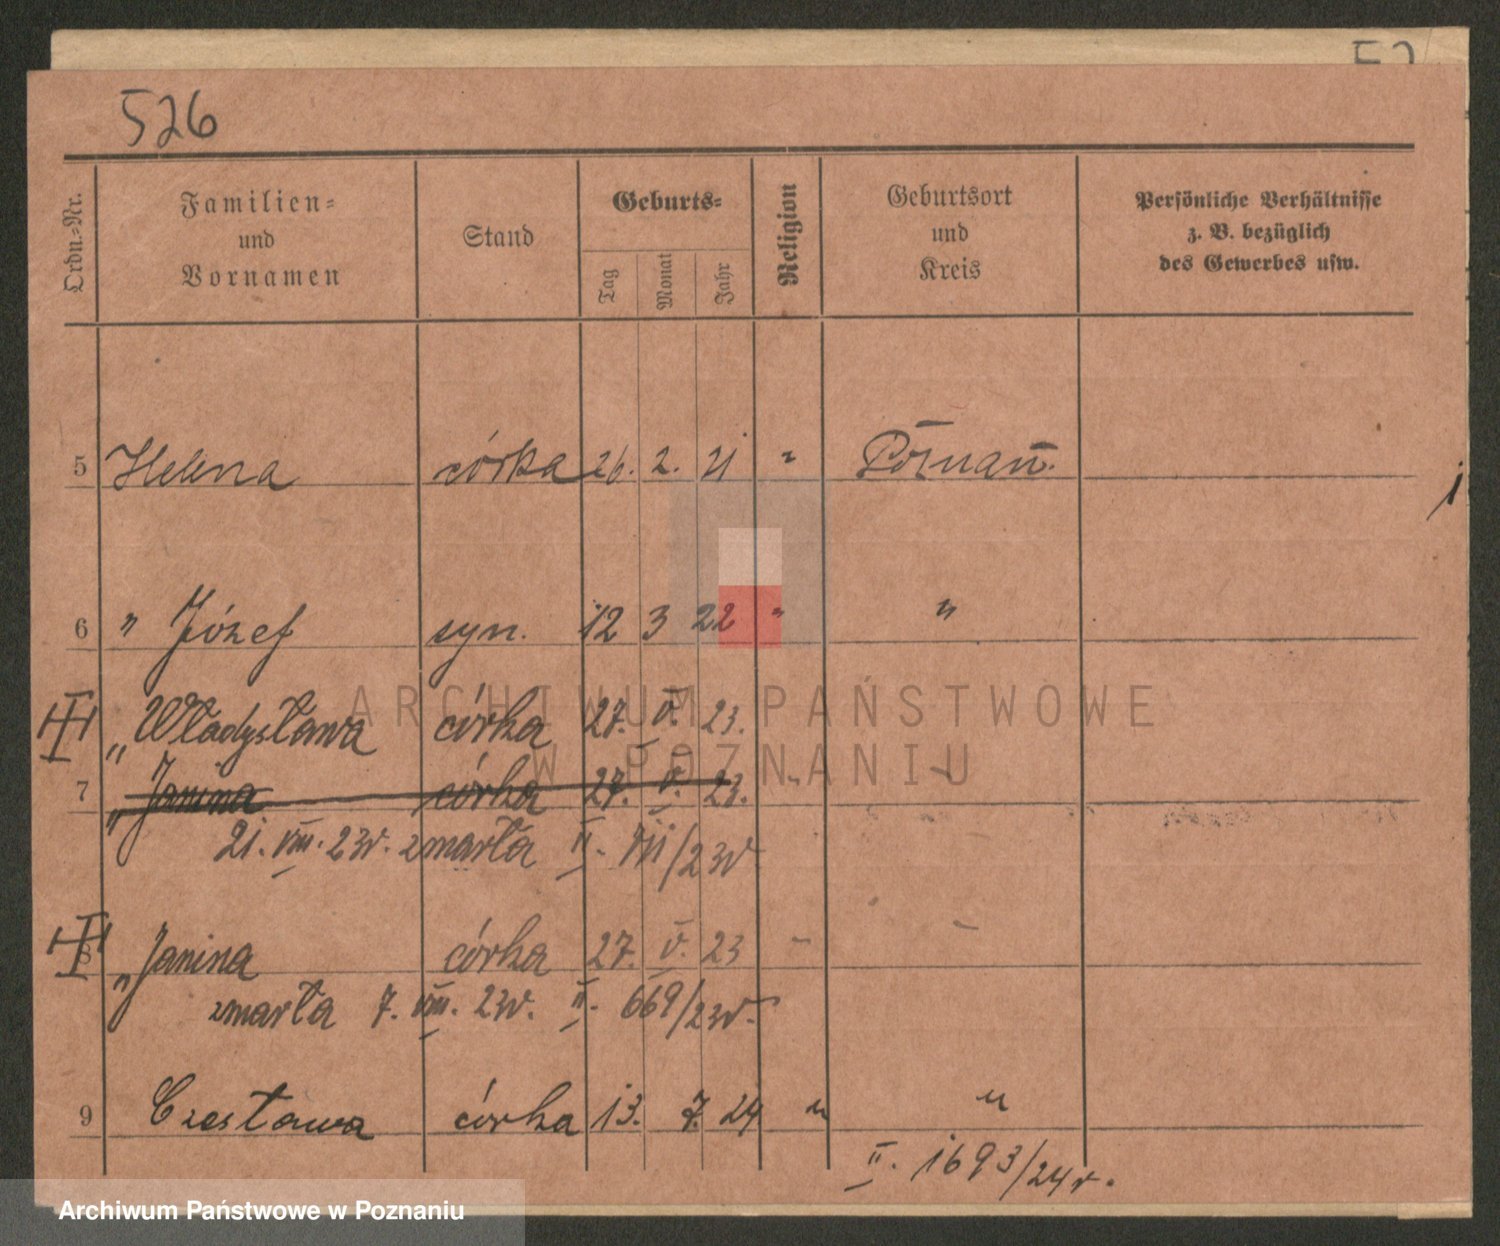 526
Ordn.-Nr.
Familien- und Vornamen
Stand
Geburts-
Tag Monat Jahr
Religion
Geburtsort und Kreis
Persönliche Verhältnisse
z. B. bezüglich
des Gewerbes usw.
5 Helena córka 26. 2. 21 " Poznań.
6 " Józef syn. 12 3 22 " "
" Władysława córka 27. V. 23.
ARCHIWUM PAŃSTWOWE
W POZNANIU
7 " Janina córka 27. V. 23.
21. VIII. 23r. zmarła II.
8 " Janina córka 27. V. 23
zmarła 7. VIII. 23r. II. 669/23r.
9 Czesława córka 13. 7. 24 " "
II. 1693/24r.
Archiwum Państwowe w Poznaniu